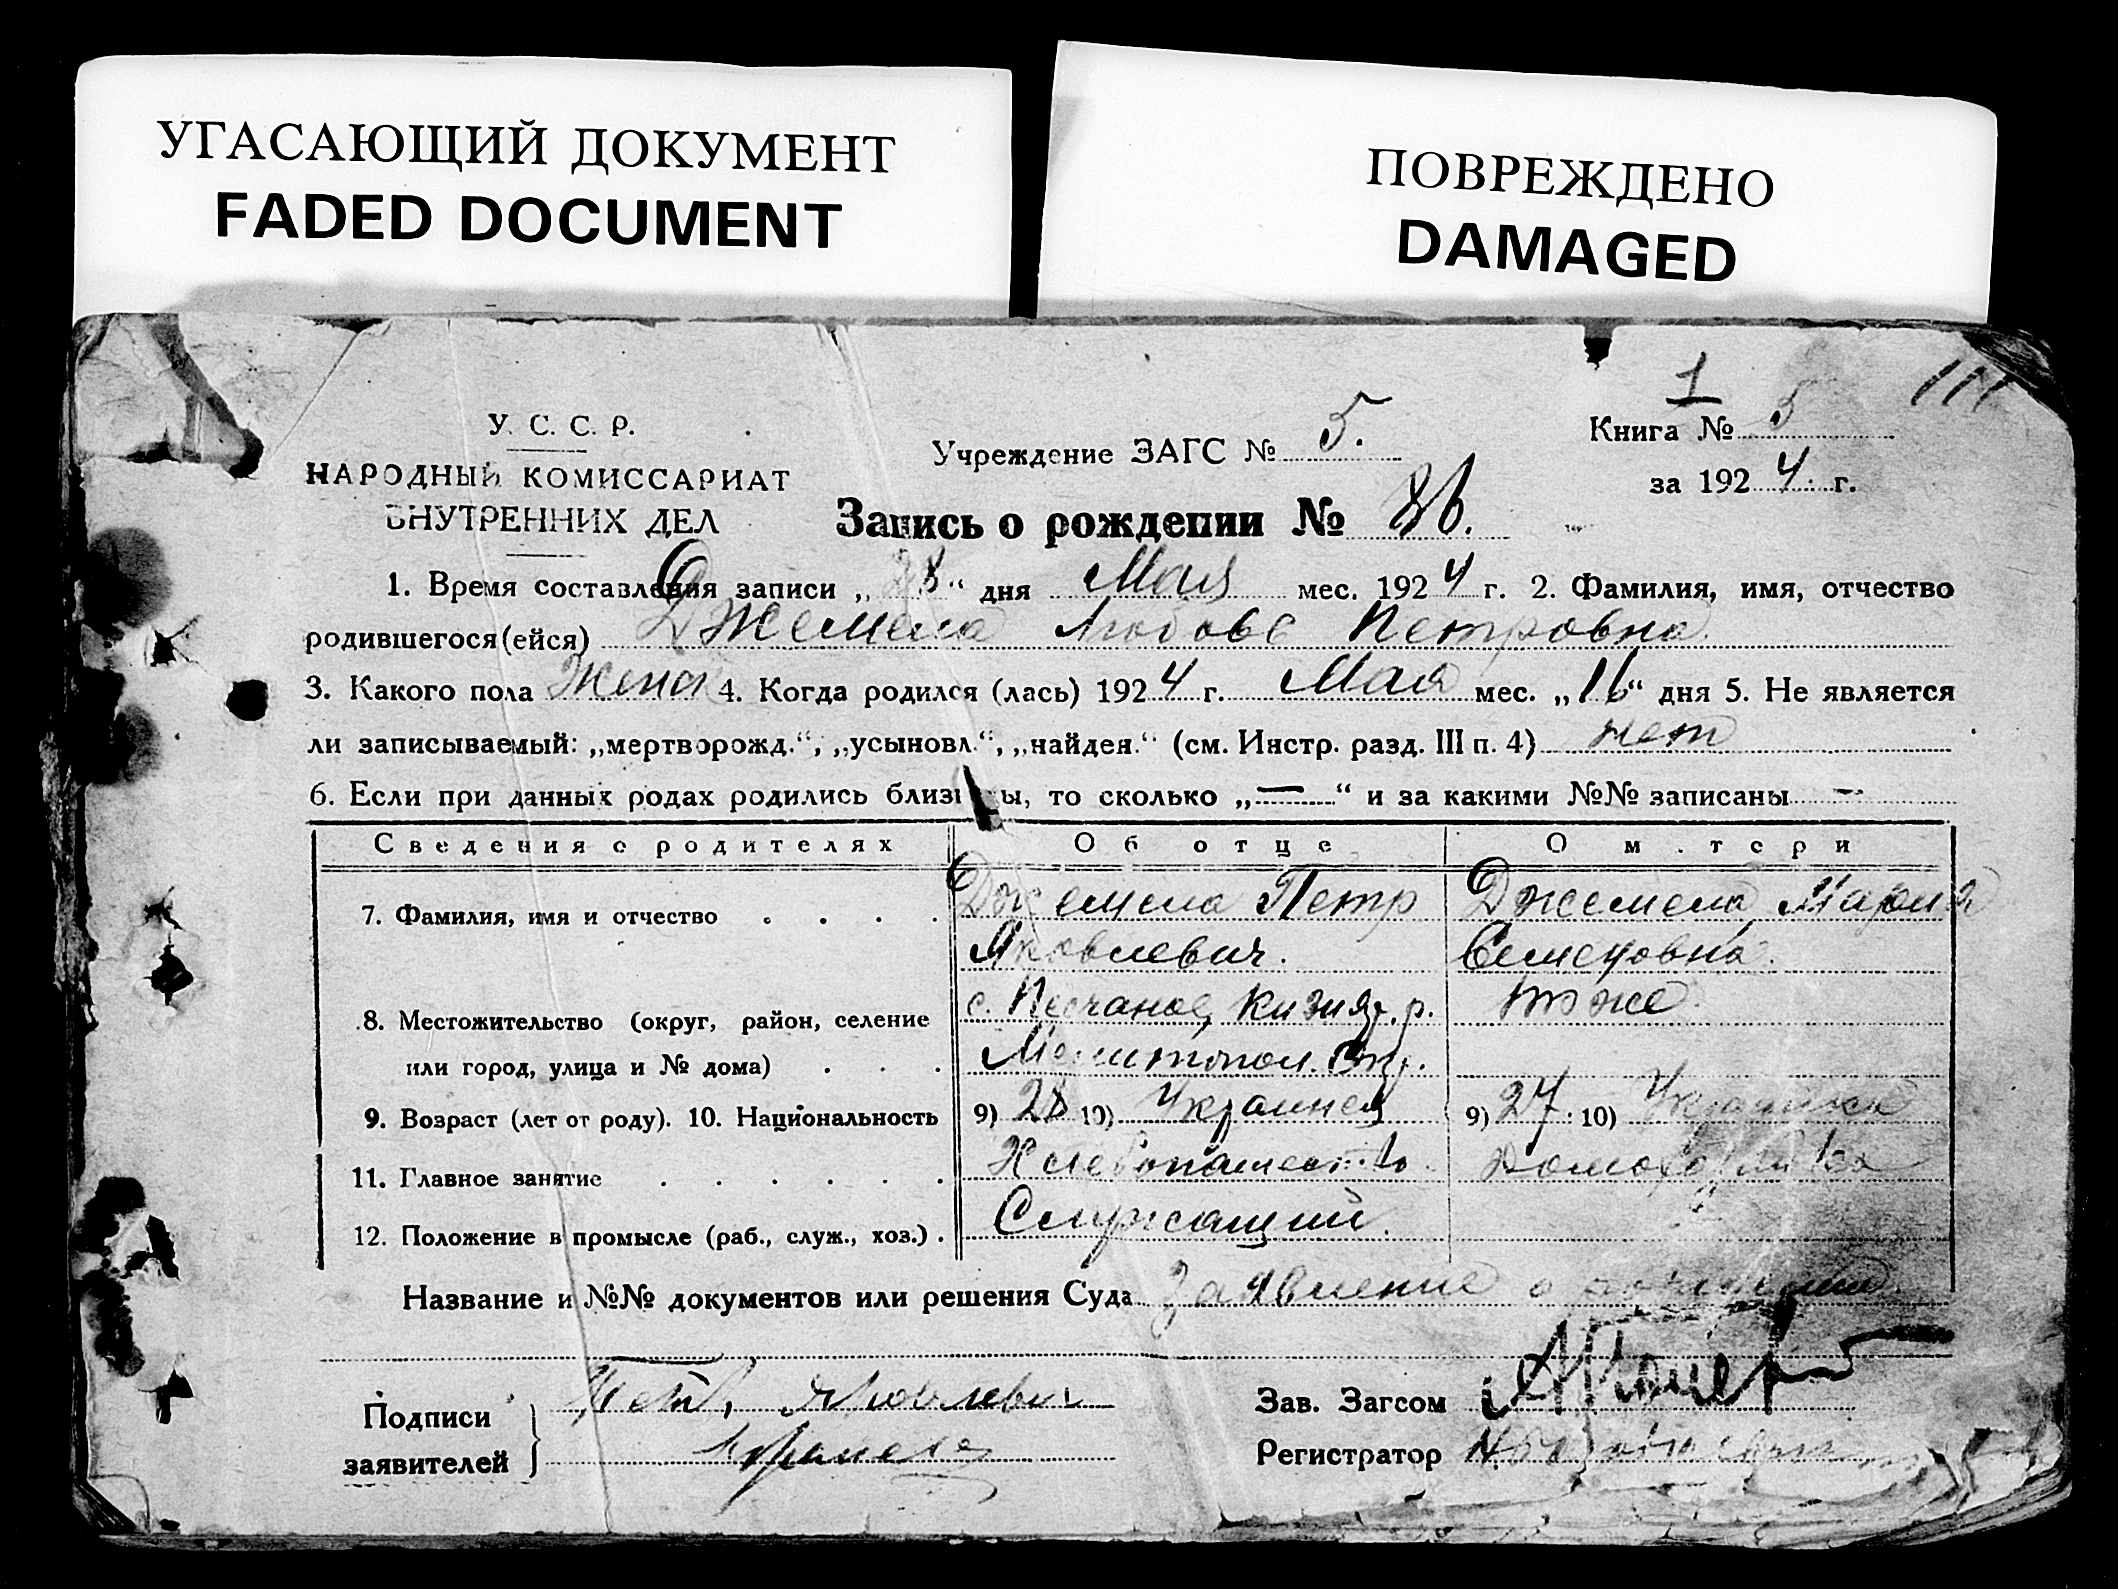 УГАСАЮЩИЙ ДОКУМЕНТ
FADED DOCUMENT
ПОВРЕЖДЕНО
DAMAGED
1
У. С. С. Р.
НАРОДНЫЙ КОМИССАРИАТ
ВНУТРЕННИХ ДЕЛ
Учреждение ЗАГС № 5.
Книга № 5
за 1924 г.
Запись о рождении № 26.
1. Время составления записи „28“ дня Мая мес. 1924 г. 2. Фамилия, имя, отчество
родившегося(ейся) Джемела Любовь Петровна
3. Какого пола Женск 4. Когда родился (лась) 1924 г. Мая мес. „16“ дня 5. Не является
ли записываемый: „мертворожд.“, „усыновл.“, „найден.“ (см. Инстр. разд. III п. 4) нет
6. Если при данных родах родились близнецы, то сколько „—“ и за какими №№ записаны —
Сведения о родителях Об отце О матери
7. Фамилия, имя и отчество Джемела Петр Джемела Мария
Яковлевич. Семеновна.
8. Местожительство (округ, район, селение с. Песчаное, Кизияр. р. тоже
или город, улица и № дома) Мелитопол. Окр.
9. Возраст (лет от роду). 10. Национальность 9) 28 10) Украинец 9) 27 10) Украинка
11. Главное занятие Хлебопашество Домохозяйка
12. Положение в промысле (раб., служ., хоз.) Служащий.
Название и №№ документов или решения Суда Заявление о рождении
Подписи
заявителей
Петр Яковлевич
Зав. Загсом
Регистратор